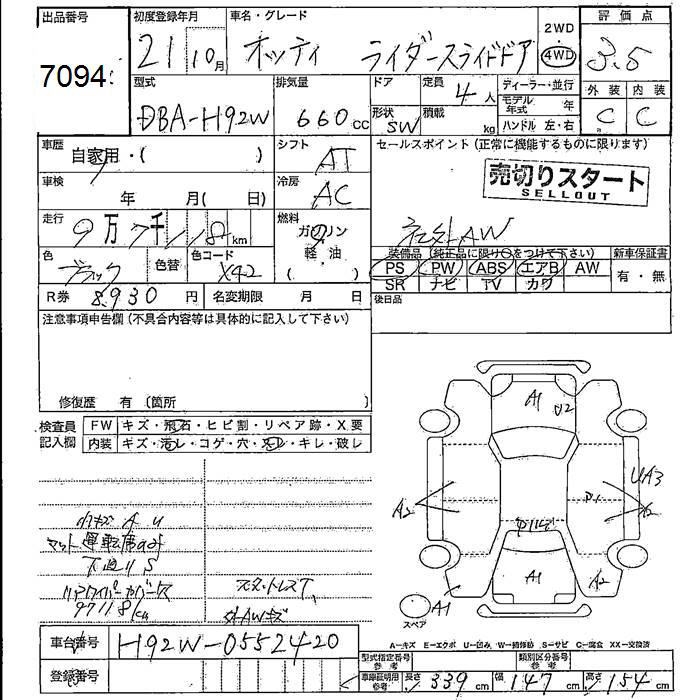 出品番号
7094
初度登録年月
21 10月
車名・グレード
オッティ ライダースライドドア
2WD
4WD
評価点
3.5
外装 内装
C C
型式
DBA-H92W
排気量
660cc
ドア
形状
SW
定員
4人
積載
kg
ディーラー・並行
モデル年式 年
ハンドル 左・右
車歴
自家用・( )
シフト
AT
セールスポイント (正常に機能するものに限ります)
売切りスタート
SELLOUT
社外AW
車検
年 月( 日)
冷房
AC
走行
9万7千
km
燃料
ガソリン
軽・油
( )
色
ブラック
色替
色コード
X42
装備品 (純正品に限り○をつけて下さい)
PS PW ABS エアB AW
SR ナビ TV カワ
新車保証書
有・無
R券 8,930円
名変期限 月 日
後日品
注意事項申告欄(不具合内容等は具体的に記入して下さい)
修復歴 有 (箇所 )
検査員記入欄
FW キズ・飛石・ヒビ割・リペア跡・X要
内装 キズ・汚レ・コゲ・穴・スレ・キレ・破レ
マット運転席のみ
下廻りS
97118km
スス・トレスT
外AWキズ
A1
U2
A2
UA3
P1
A2
A1
A2
A1
スペア
車台番号
H92W-0552420
登録番号
A…キズ E…エクボ U…凹み W…補修跡 S…サビ C…腐食 XX…交換済
型式指定番号
参考
類別区分番号
参考
車庫証明用
参考
長さ 339cm 幅 147cm 高さ 154cm